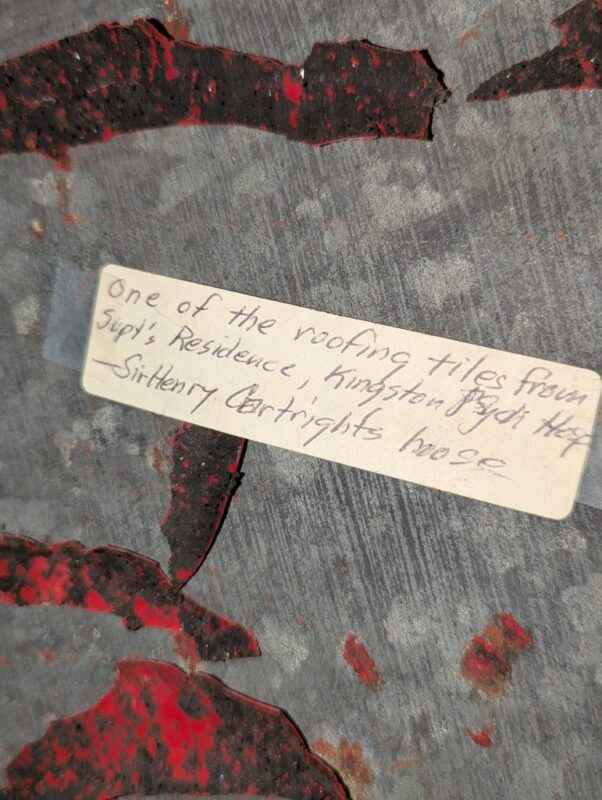 One of the roofing tiles from
Supt's Residence, Kingston Psych Hosp
- Sir Henry Cartrights house